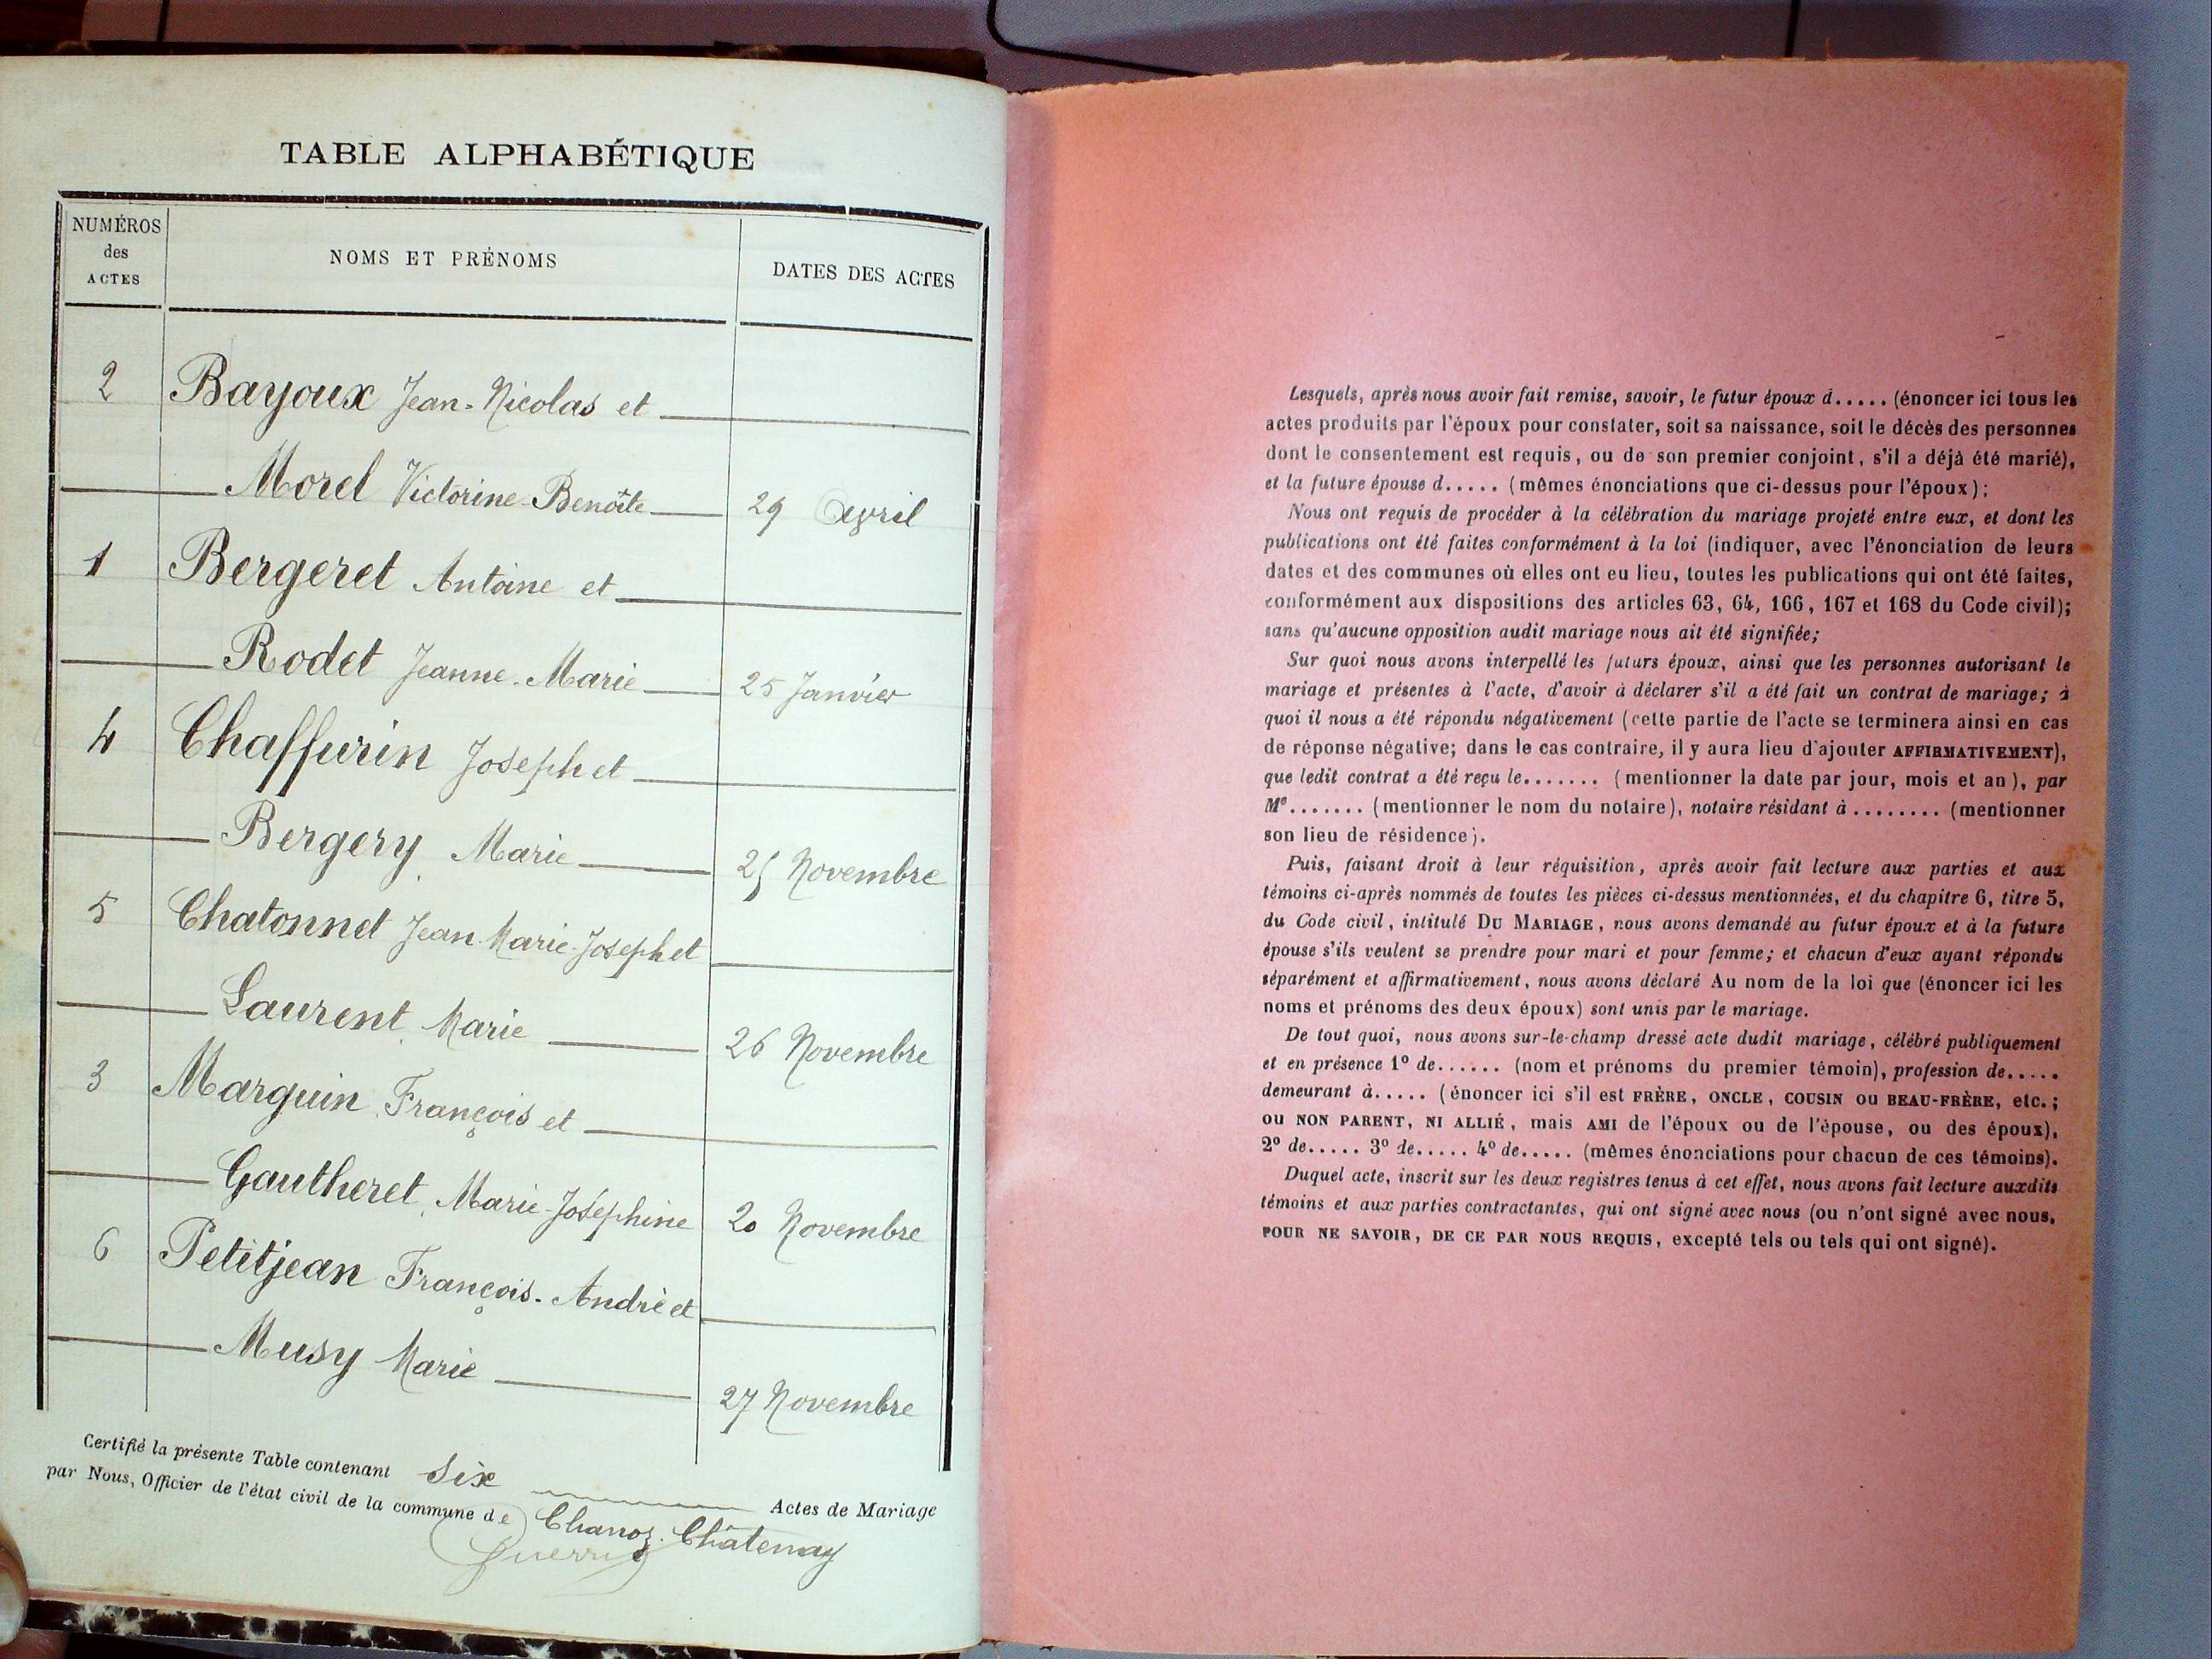 TABLE ALPHABÉTIQUE
NUMÉROS
des
ACTES
NOMS ET PRÉNOMS
DATES DES ACTES
2 Bayoux Jean-Nicolas et
Morel Victorine-Benoîte 29 Avril
1 Bergeret Antoine et
Rodet Jeanne-Marie 25 Janvier
4 Chaffurin Joseph et
Bergery Marie 25 Novembre
5 Chatonnet Jean-Marie-Joseph et
Laurent Marie 26 Novembre
3 Marguin François et
Gautheret Marie-Joséphine 20 Novembre
6 Petitjean François-André et
Musy Marie 27 Novembre
Certifié la présente Table contenant Six Actes de Mariage
par Nous, Officier de l'état civil de la commune de Chanoz-Châtenay
Lesquels, après nous avoir fait remise, savoir, le futur époux d..... (énoncer ici tous les
actes produits par l'époux pour constater, soit sa naissance, soit le décès des personnes
dont le consentement est requis, ou de son premier conjoint, s'il a déjà été marié),
et la future épouse d..... (mêmes énonciations que ci-dessus pour l'époux);
Nous ont requis de procéder à la célébration du mariage projeté entre eux, et dont les
publications ont été faites conformément à la loi (indiquer, avec l'énonciation de leurs
dates et des communes où elles ont eu lieu, toutes les publications qui ont été faites,
conformément aux dispositions des articles 63, 64, 166, 167 et 168 du Code civil);
sans qu'aucune opposition audit mariage nous ait été signifiée;
Sur quoi nous avons interpellé les futurs époux, ainsi que les personnes autorisant le
mariage et présentes à l'acte, d'avoir à déclarer s'il a été fait un contrat de mariage; à
quoi il nous a été répondu négativement (cette partie de l'acte se terminera ainsi en cas
de réponse négative; dans le cas contraire, il y aura lieu d'ajouter AFFIRMATIVEMENT),
que ledit contrat a été reçu le....... (mentionner la date par jour, mois et an), par
Me....... (mentionner le nom du notaire), notaire résidant à ........ (mentionner
son lieu de résidence).
Puis, faisant droit à leur réquisition, après avoir fait lecture aux parties et aux
témoins ci-après nommés de toutes les pièces ci-dessus mentionnées, et du chapitre 6, titre 5,
du Code civil, intitulé DU MARIAGE, nous avons demandé au futur époux et à la future
épouse s'ils veulent se prendre pour mari et pour femme; et chacun d'eux ayant répondu
séparément et affirmativement, nous avons déclaré Au nom de la loi que (énoncer ici les
noms et prénoms des deux époux) sont unis par le mariage.
De tout quoi, nous avons sur-le-champ dressé acte dudit mariage, célébré publiquement
et en présence 1º de...... (nom et prénoms du premier témoin), profession de.....
demeurant à..... (énoncer ici s'il est FRÈRE, ONCLE, COUSIN OU BEAU-FRÈRE, etc.;
OU NON PARENT, NI ALLIÉ, mais AMI de l'époux ou de l'épouse, ou des époux),
2º de..... 3º de..... 4º de..... (mêmes énonciations pour chacun de ces témoins).
Duquel acte, inscrit sur les deux registres tenus à cet effet, nous avons fait lecture auxdits
témoins et aux parties contractantes, qui ont signé avec nous (ou n'ont signé avec nous,
POUR NE SAVOIR, DE CE PAR NOUS REQUIS, excepté tels ou tels qui ont signé).